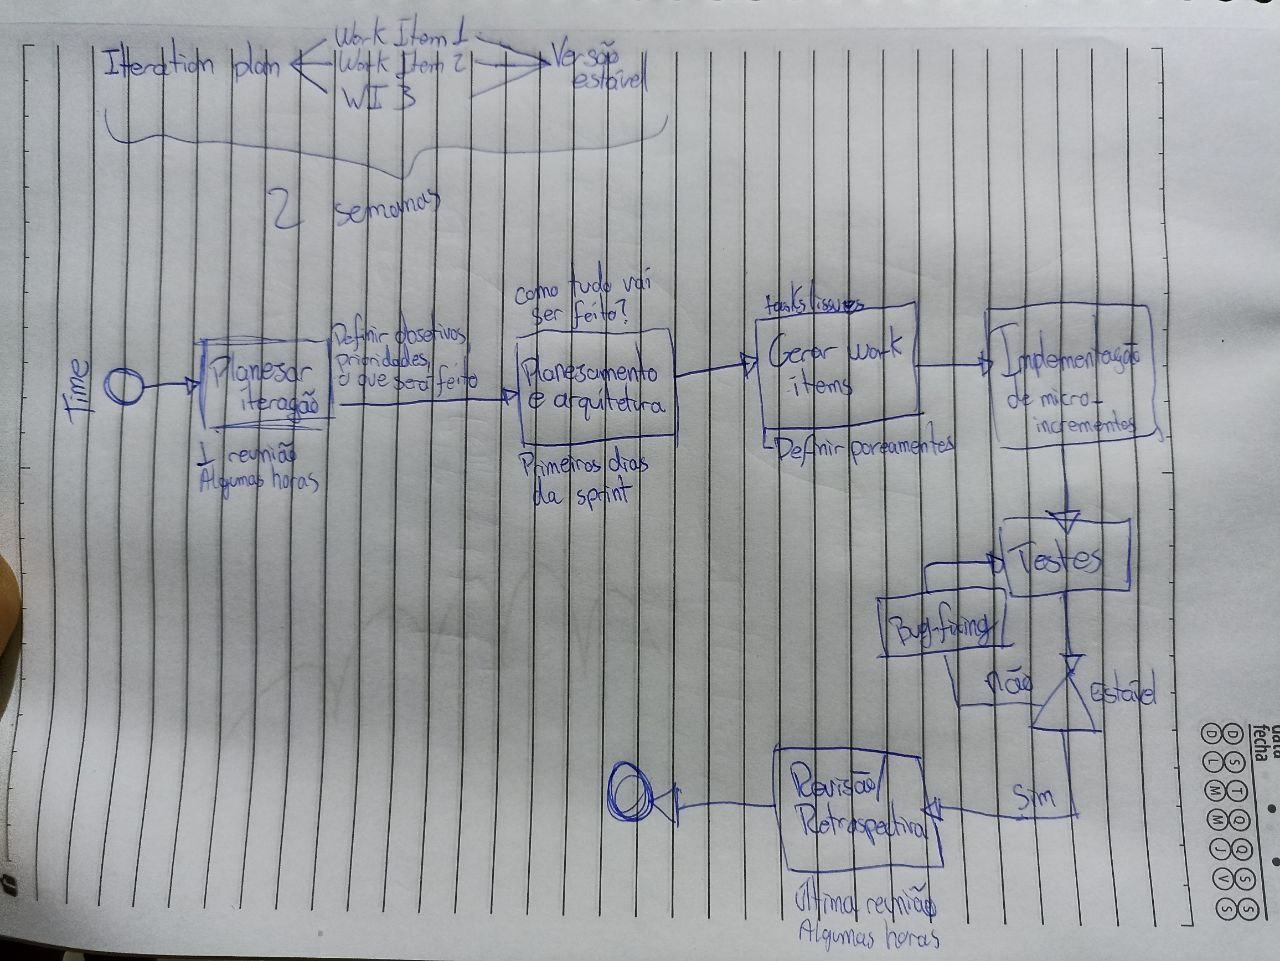 Work Item 1
Iteration plan
Work Item 2
WI 3
Versão
estável
2 semanas
Time
Planejar
iteração
1 reunião
Algumas horas
Definir objetivos,
prioridades,
o que será feito
como tudo vai
ser feito?
Planejamento
e arquitetura
Primeiros dias
da sprint
tasks/issues
Gerar work
items
Definir pareamentos
Implementação
de micro-
incrementos
Testes
Bug-fixing
não
estável
Sim
Revisão/
Retrospectiva
Última reunião
Algumas horas
data
fecha
D S T Q Q S S
D L M M J V S